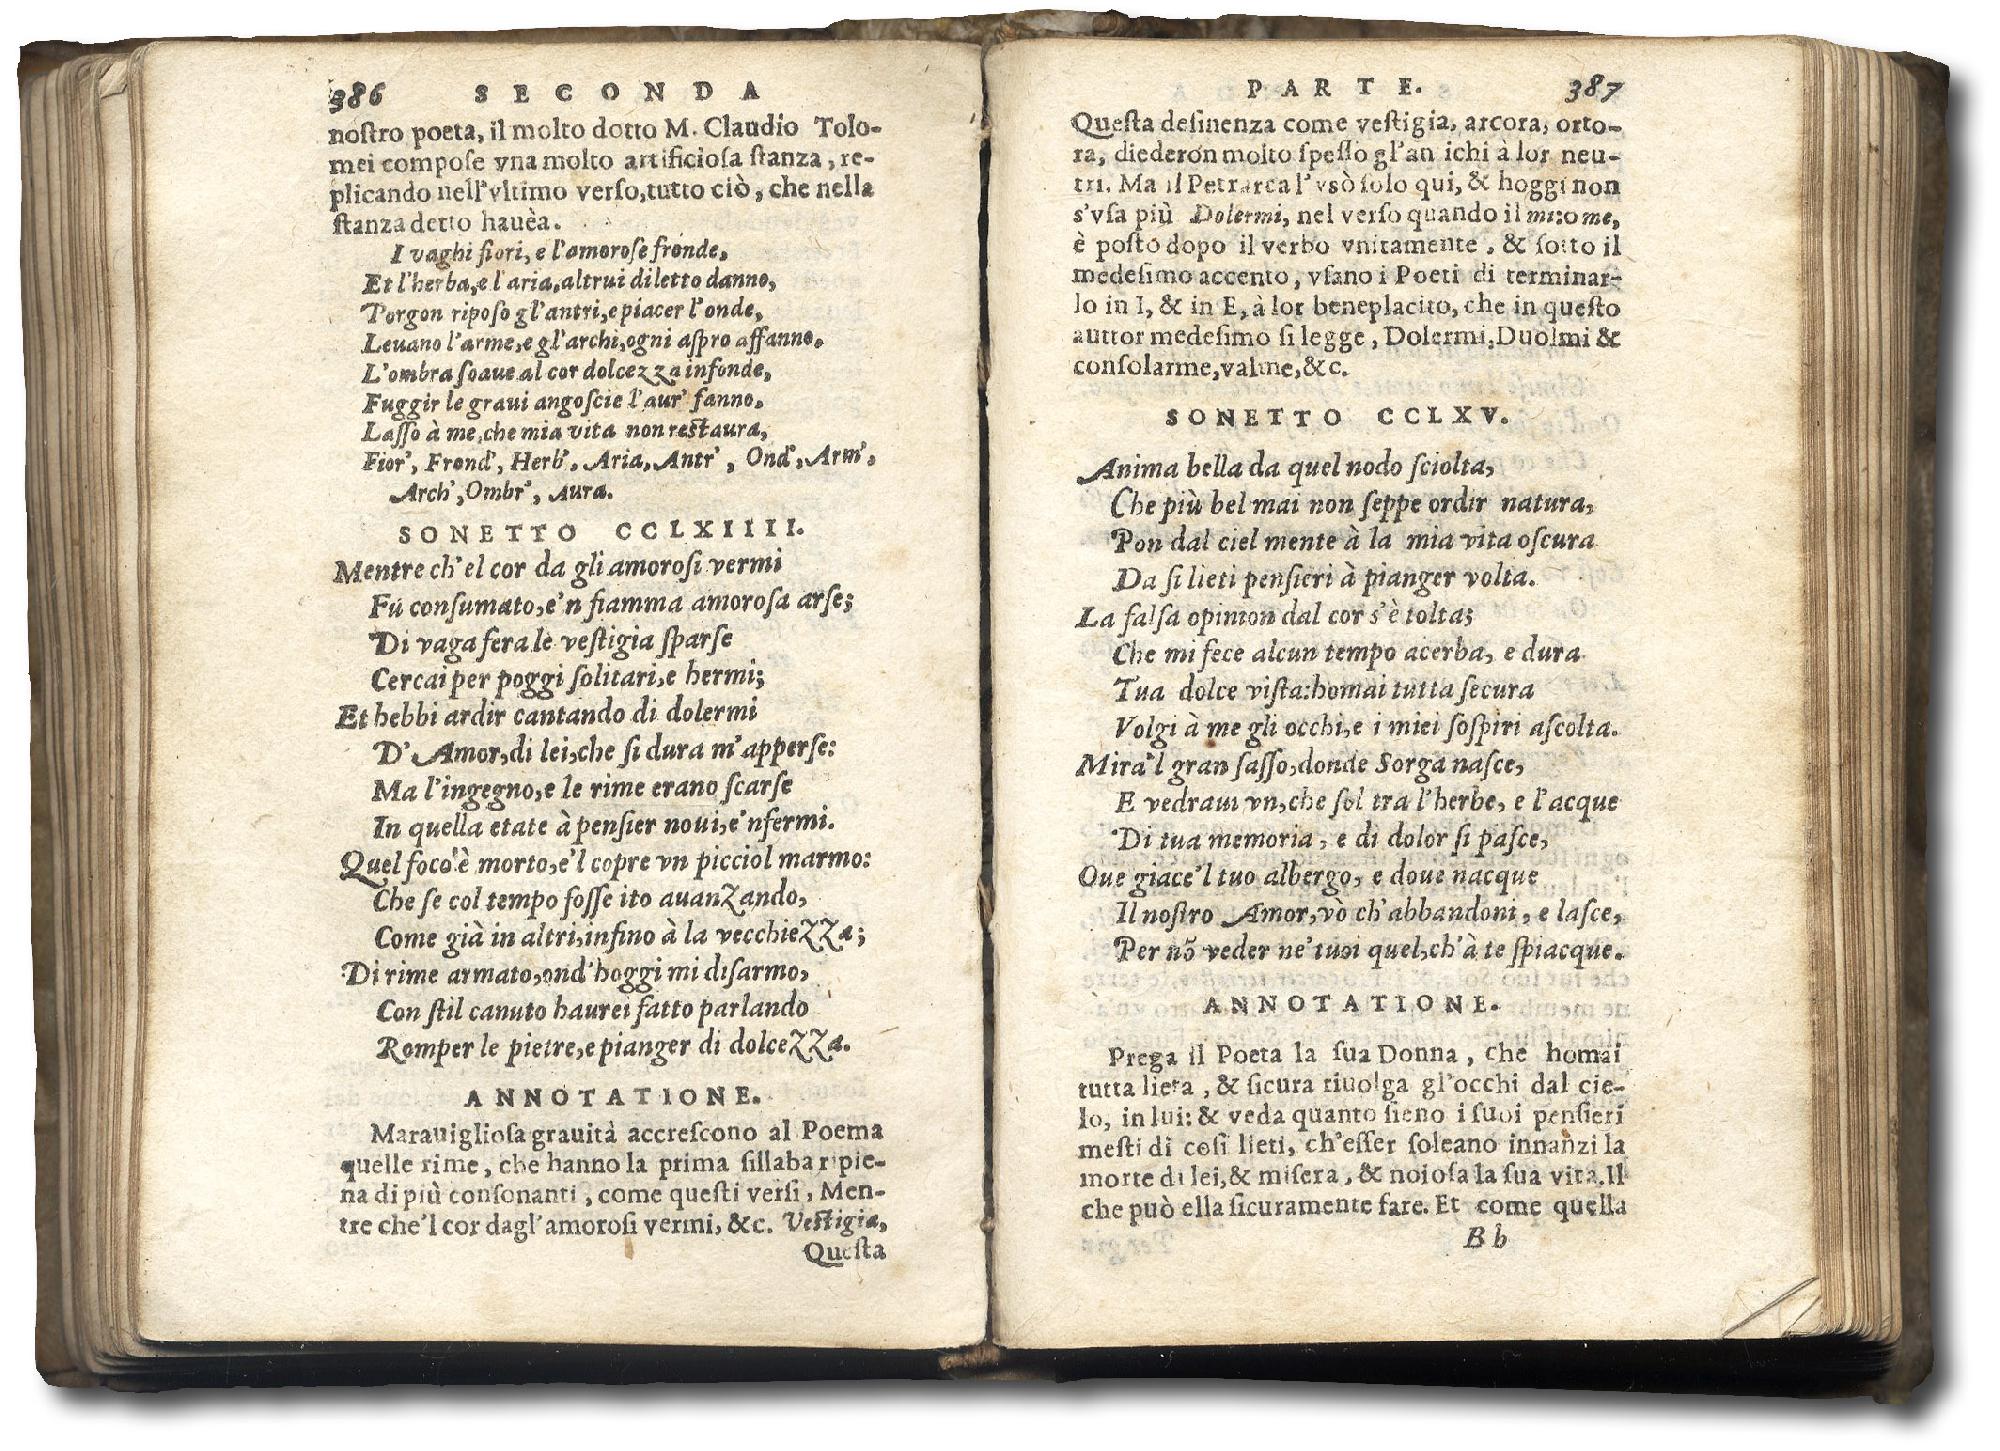 386 SECONDA
nostro poeta, il molto dotto M. Claudio Tolo-
mei compose vna molto artificiosa stanza, re-
plicando nell'vltimo verso, tutto ciò, che nella
stanza detto hauèa.
I vaghi fiori, e l'amorose fronde,
Et l'herba, e l'aria, altrui diletto danno,
Porgon riposo gl'antri, e piacer l'onde,
Leuano l'arme, e gl'archi, ogni aspro affanno.
L'ombra soaue al cor dolcezza infonde,
Fuggir le graui angoscie l'aur' fanno,
Lasso à me, che mia vita non restaura,
Fior', Frond', Herb', Aria, Antr', Ond', Arm',
Arch', Ombr', Aura.
SONETTO CCLXIIII.
Mentre ch'el cor da gli amorosi vermi
Fù consumato, e'n fiamma amorosa arse;
Di vaga fera le vestigia sparse
Cercai per poggi solitari, e hermi;
Et hebbi ardir cantando di dolermi
D'Amor, di lei, che si dura m'apperse:
Ma l'ingegno, e le rime erano scarse
In quella etate à pensier noui, e'nfermi.
Quel foco è morto, e'l copre vn picciol marmo:
Che se col tempo fosse ito auanzando,
Come già in altri, infino à la vecchiezza;
Di rime armato, ond'hoggi mi disarmo,
Con stil canuto haurei fatto parlando
Romper le pietre, e pianger di dolcezza.
ANNOTATIONE.
Marauigliosa grauità accrescono al Poema
quelle rime, che hanno la prima sillaba ripie-
na di più consonanti, come questi versi, Men-
tre che'l cor dagl'amorosi vermi, &c. Vestigia,
Questa
PARTE. 387
Questa desinenza come vestigia, arcora, orto-
ra, diederon molto spesso gl'an ichi à lor neu-
tri. Ma il Petrarca l'vsò solo qui, & hoggi non
s'vsa più Dolermi, nel verso quando il mi: o me,
è posto dopo il verbo vnitamente, & sotto il
medesimo accento, vsano i Poeti di terminar-
lo in I, & in E, à lor beneplacito, che in questo
auttor medesimo si legge, Dolermi, Duolmi &
consolarme, valme, &c.
SONETTO CCLXV.
Anima bella da quel nodo sciolta,
Che più bel mai non seppe ordir natura,
Pon dal ciel mente à la mia vita oscura
Da si lieti pensieri à pianger volta.
La falsa opinion dal cor s'è tolta;
Che mi fece alcun tempo acerba, e dura
Tua dolce vista: homai tutta secura
Volgi à me gli occhi, e i miei sospiri ascolta.
Mira'l gran sasso, donde Sorga nasce,
E vedraui vn, che sol tra l'herbe, e l'acque
Di tua memoria, e di dolor si pasce,
Oue giace'l tuo albergo, e doue nacque
Il nostro Amor, vò ch'abbandoni, e lasce,
Per nõ veder ne'tuoi quel, ch'à te spiacque.
ANNOTATIONE.
Prega il Poeta la sua Donna, che homai
tutta lieta, & sicura riuolga gl'occhi dal cie-
lo, in lui: & veda quanto sieno i suoi pensieri
mesti di cosi lieti, ch'esser soleano innanzi la
morte di lei, & misera, & noiosa la sua vita. Il
che può ella sicuramente fare. Et come quella
B b